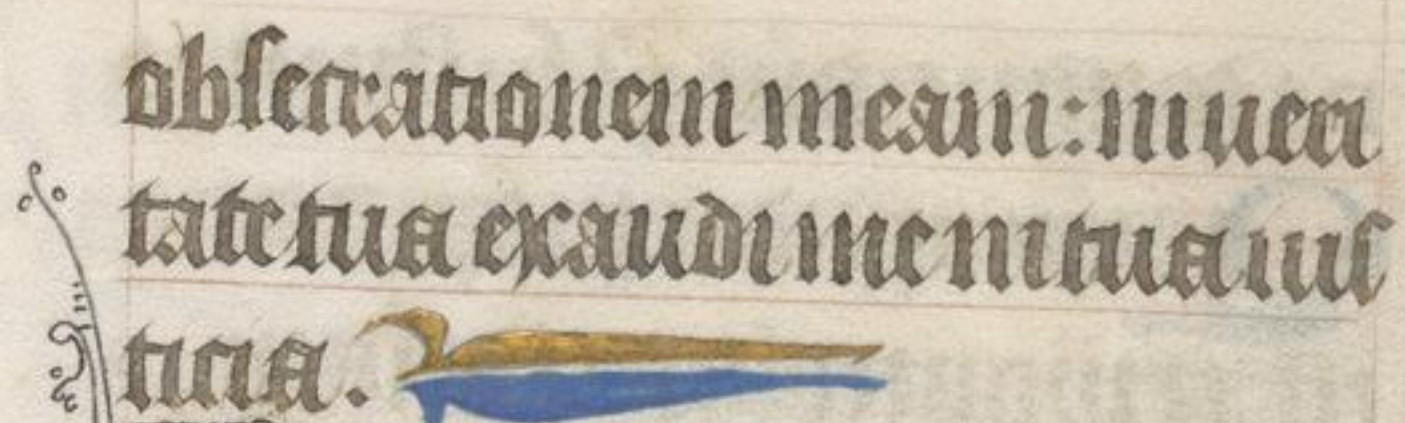 obsecrationem meam: in ueri
tate tua exaudi me in tua ius
ticia.